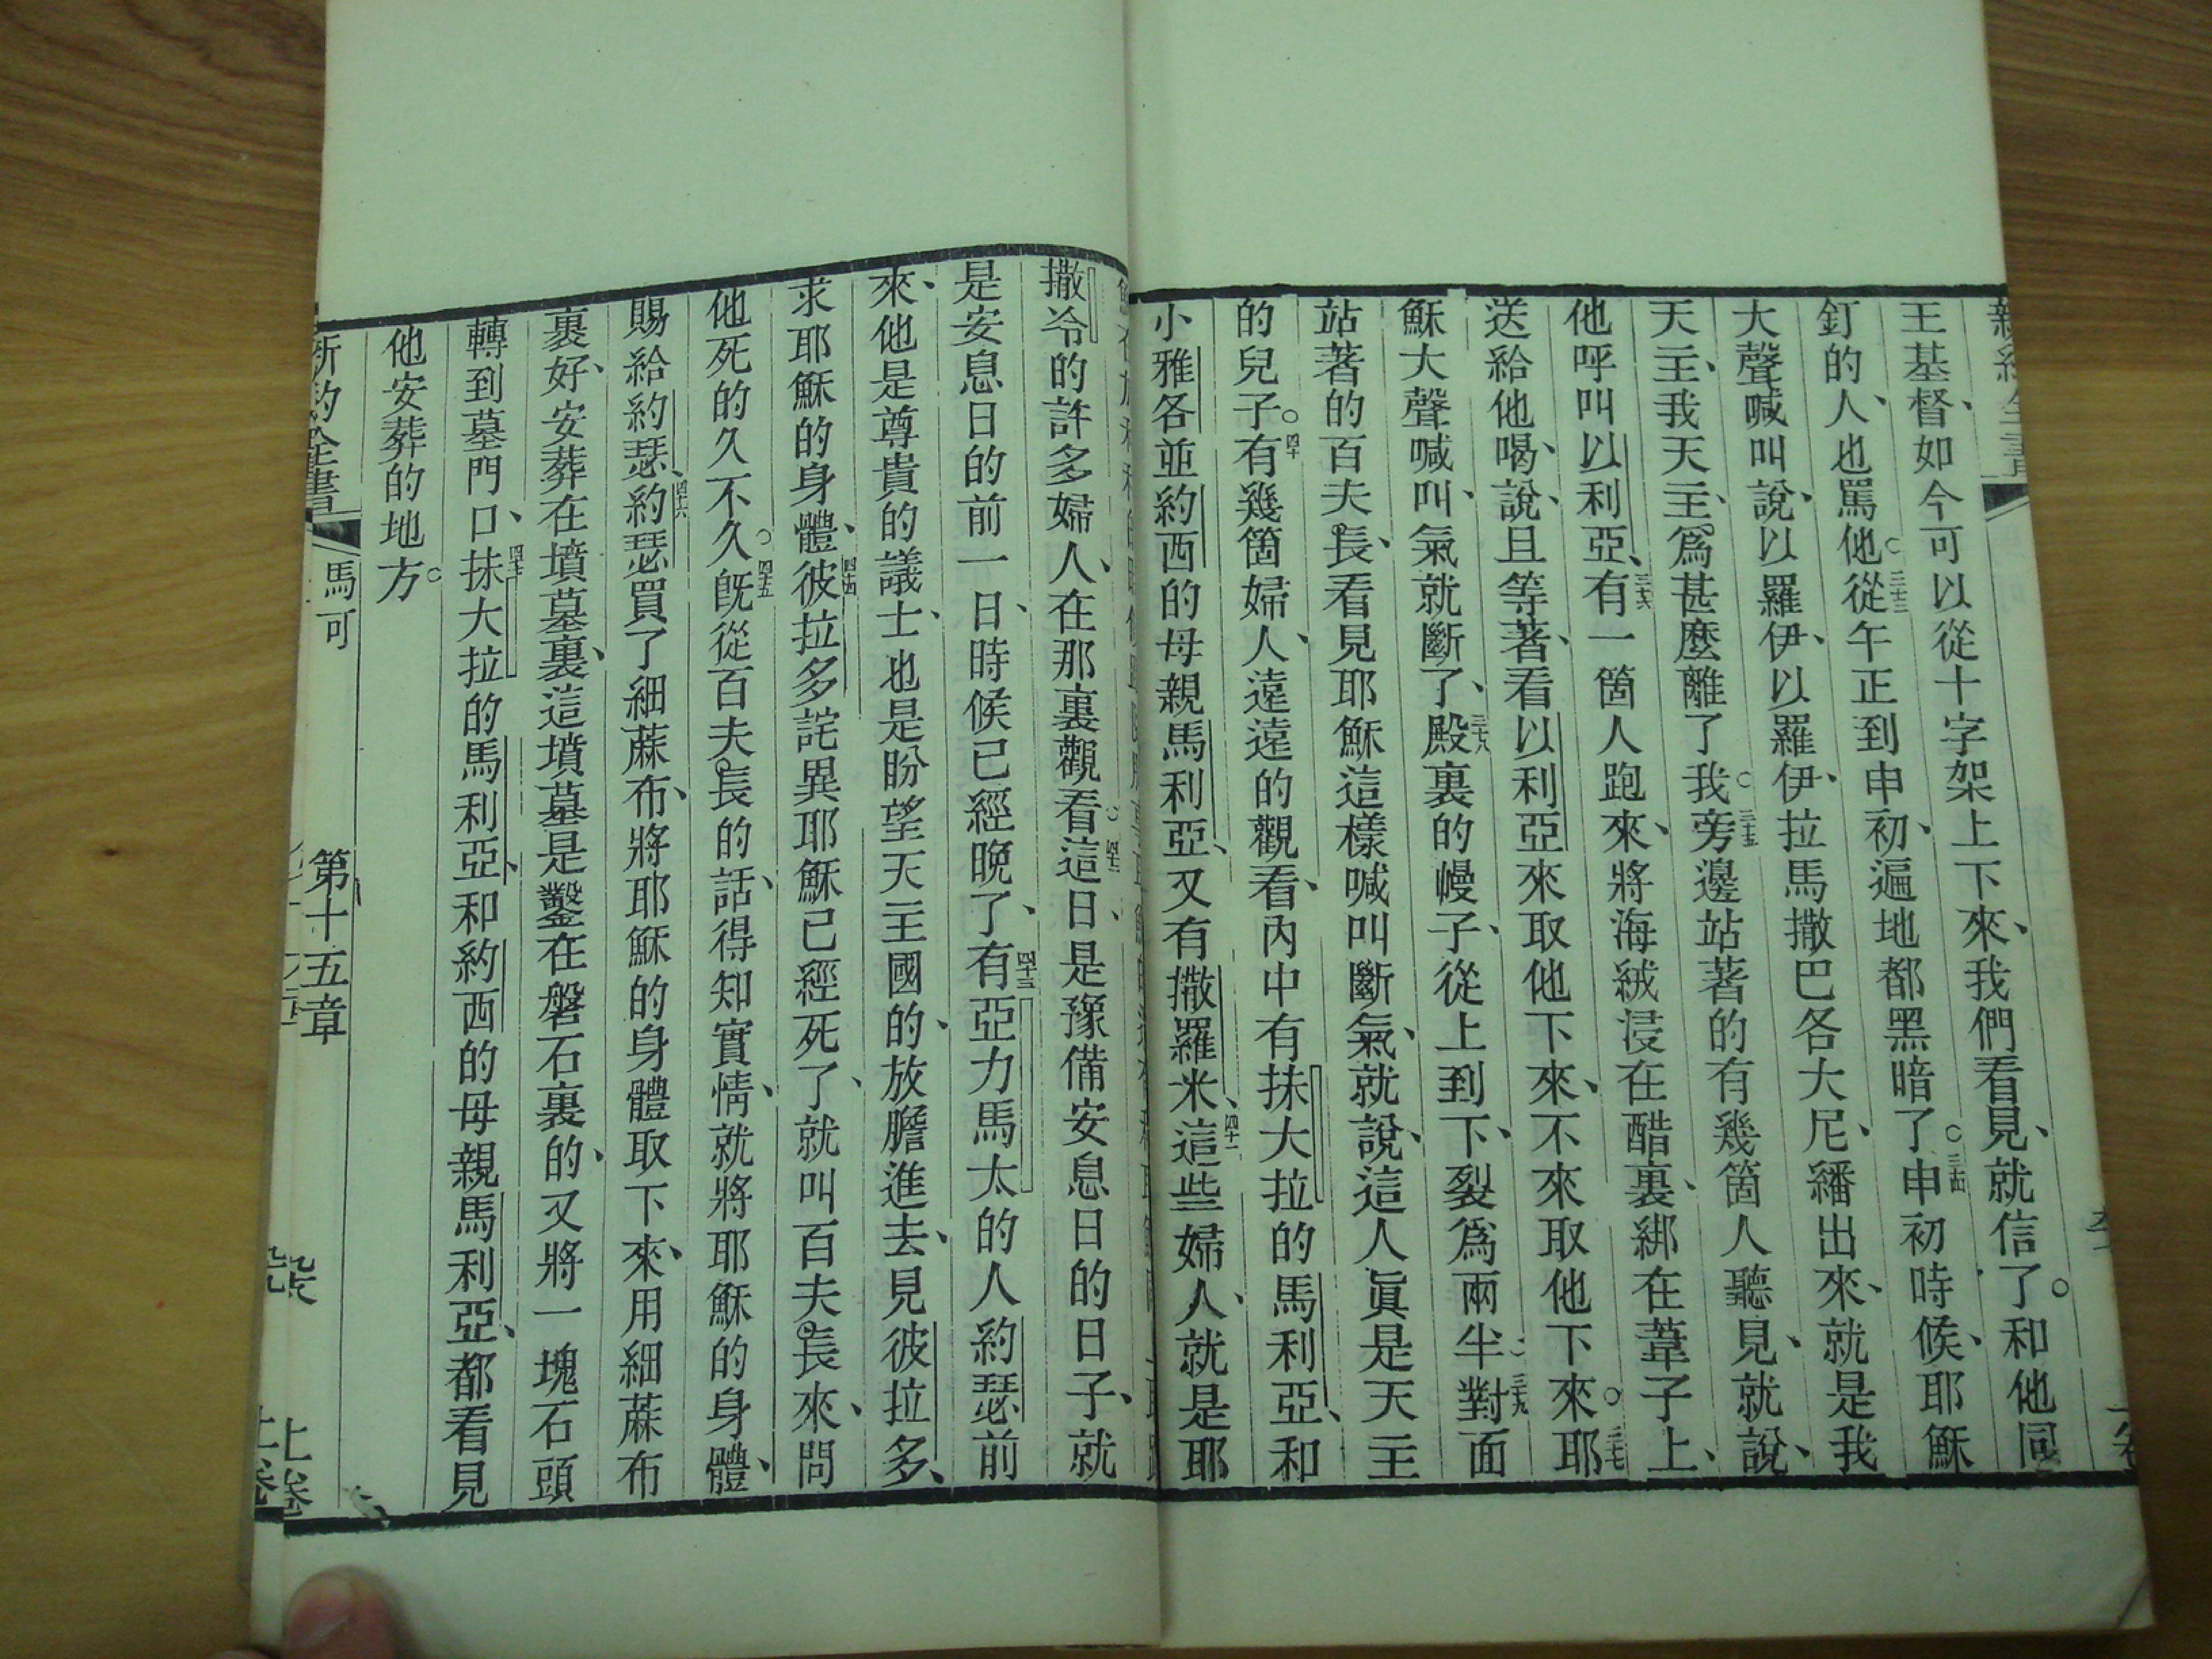 王基督、如今可以從十字架上下來、我們看見、就信了。和他同
釘的人、也罵他。三十三從午正到申初、遍地都黑暗了。三十四申初時候、耶穌
大聲喊叫說、以羅伊、以羅伊、拉馬撒巴各大尼、繙出來、就是我
天主、我天主、爲甚麼離了我。三十五旁邊站著的有幾箇人聽見、就說、
他呼叫以利亞、三十六有一箇人跑來、將海絨浸在醋裏、綁在葦子上、
送給他喝、說、且等著、看以利亞來取他下來、不來取他下來。三十七耶
穌大聲喊叫、氣就斷了、三十八殿裏的幔子、從上到下、裂爲兩半。三十九對面
站著的百夫長、看見耶穌這樣喊叫斷氣、就說、這人眞是天主
的兒子。四十有幾箇婦人、遠遠的觀看、內中有抹大拉的馬利亞、和
小雅各並約西的母親馬利亞、又有撒羅米、四十一這些婦人、就是耶
撒冷的許多婦人、在那裏觀看。四十二這日、是豫備安息日的日子、就
是安息日的前一日、時候已經晚了、四十三有亞力馬太的人約瑟前
來、他是尊貴的議士、也是盼望天主國的、放膽進去、見彼拉多、
求耶穌的身體、四十四彼拉多詫異耶穌已經死了、就叫百夫長來、問
他死的久不久。四十五旣從百夫長的話、得知實情、就將耶穌的身體、
賜給約瑟、四十六約瑟買了細蔴布、將耶穌的身體取下來、用細蔴布
裹好、安葬在墳墓裏、這墳墓是鑿在磐石裏的、又將一塊石頭
轉到墓門口、四十七抹大拉的馬利亞、和約西的母親馬利亞、都看見
他安葬的地方。
新約全書 馬可 第十五章 上卷